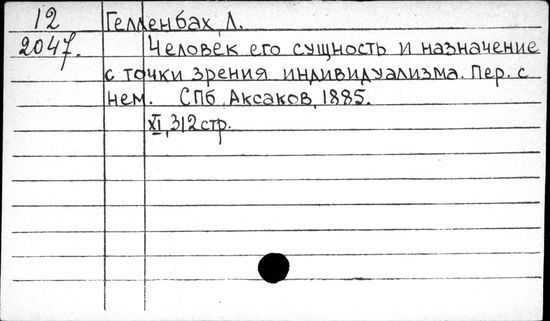 12 Гелленбах, Л.
2047. Человек его сущность и назначение
с точки зрения индивидуализма. Пер. с
нем. СПб, Аксаков, 1885.
XI, 312 стр.